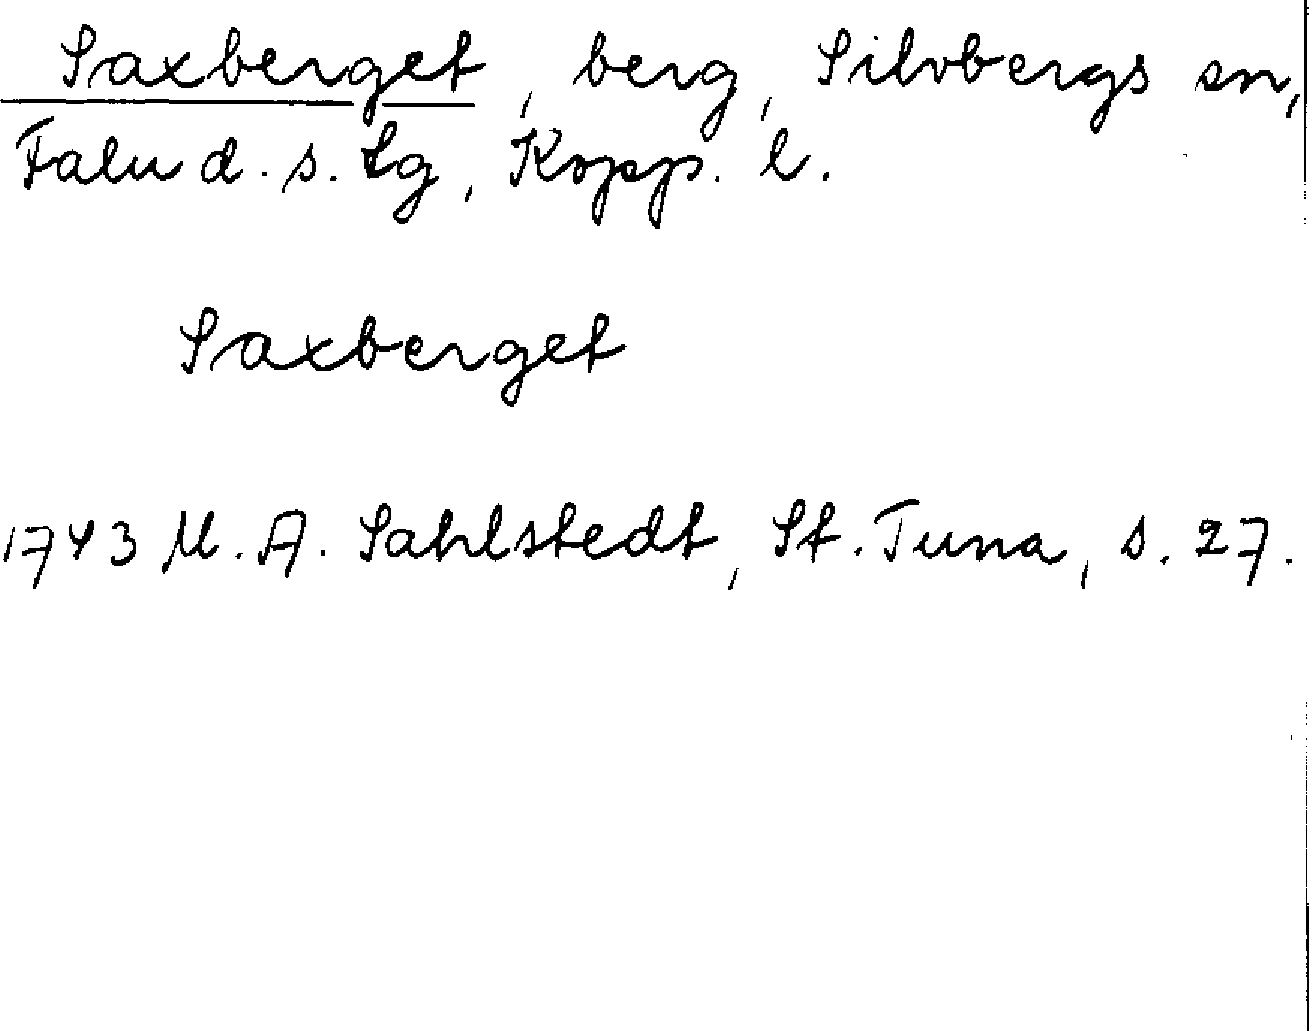 Saxberget, berg, Silvbergs sn,
Falu d. s. tg, Kopp. l.
Saxberget
1743 M. A. Sahlstedt, St. Tuna, s. 27.